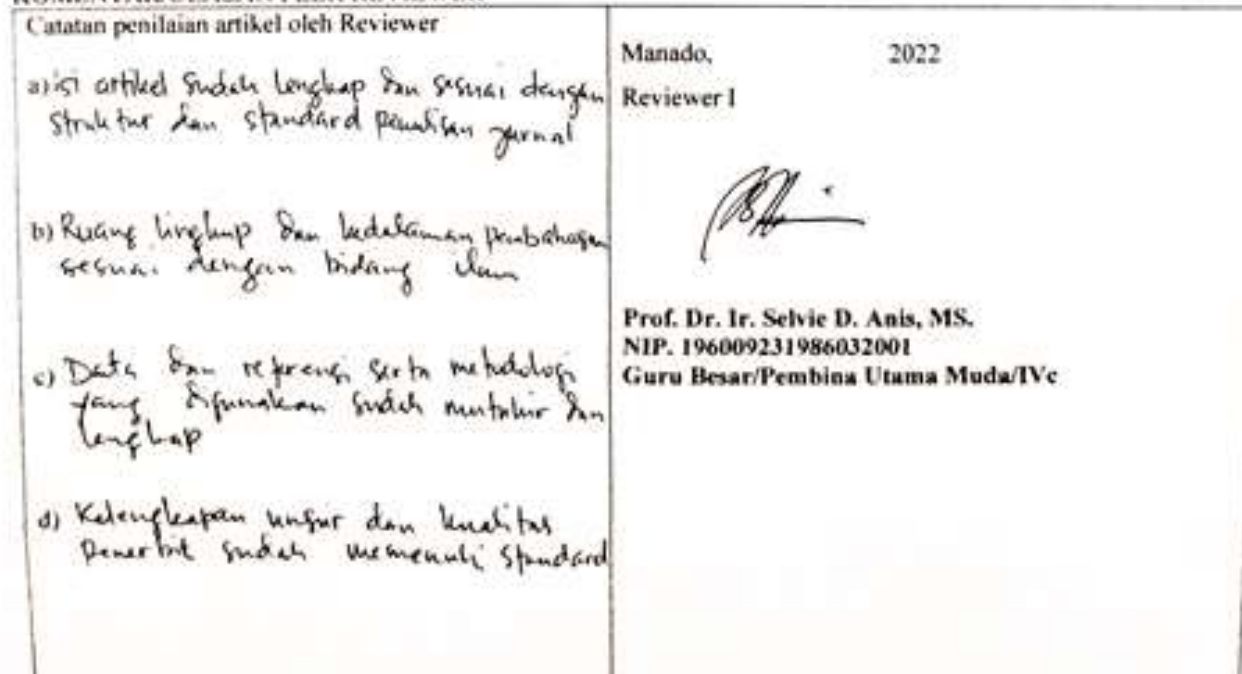 Catatan penilaian artikel oleh Reviewer
a) isi artikel sudah lengkap dan sesuai dengan
struktur dan standard penulisan jurnal
b) Ruang lingkup dan kedalaman pembahasan
sesuai dengan bidang ilmu
c) Data dan referensi serta metodologi
yang digunakan sudah mutahir dan
lengkap
d) Kelengkapan unsur dan kualitas
Penerbit sudah memenuhi standard
Manado, 2022
Reviewer I
Prof. Dr. Ir. Selvie D. Anis, MS.
NIP. 196009231986032001
Guru Besar/Pembina Utama Muda/IVc